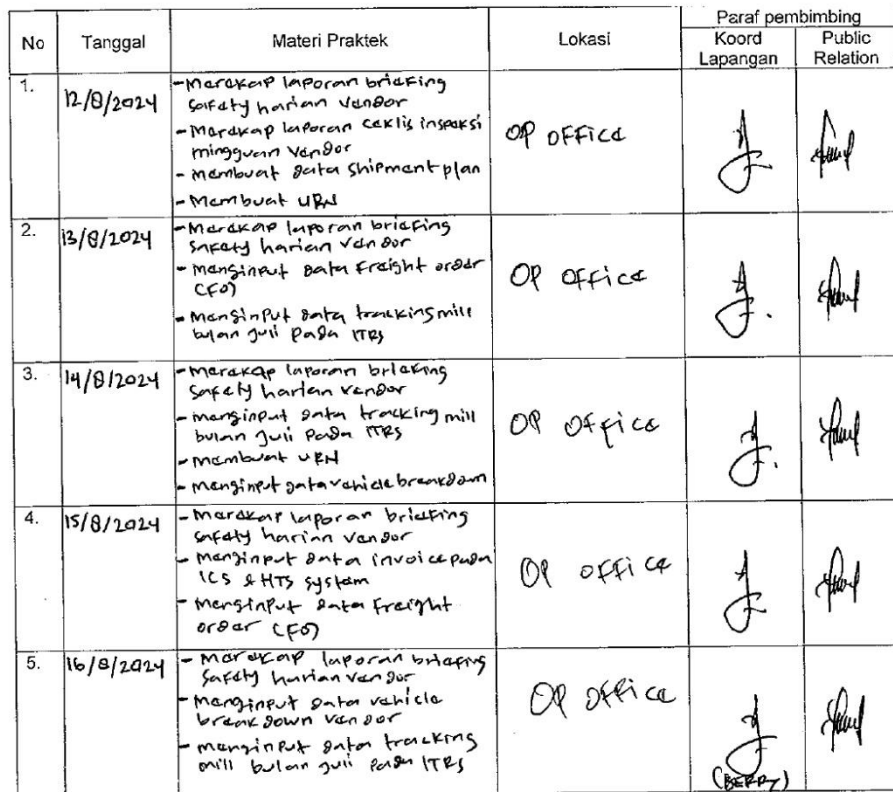 No Tanggal Materi Praktek Lokasi Paraf pembimbing
Koord Lapangan Public Relation
1. 12/8/2024 OP OFFICE
- Merekap laporan briefing
safety harian vendor
- Merekap laporan ceklis inspeksi
mingguan vendor
- Membuat data shipment plan
- Membuat URN
2. 13/8/2024 OP OFFICE
- Merekap laporan briefing
safety harian vendor
- Menginput data Freight order
(FO)
- Menginput data tracking mill
bulan Juli pada ITRS
3. 14/8/2024 OP OFFICE
- Merekap laporan briefing
safety harian vendor
- menginput data tracking mill
bulan Juli pada ITRS
- membuat URN
- menginput data vehicle breakdown
4. 15/8/2024 OP OFFICE
- Merekap laporan briefing
safety harian vendor
- Menginput data invoice pada
ICS & HTS system
- Menginput data Freight
order (FO)
5. 16/8/2024 OP OFFICE
- Merekap laporan briefing
safety harian vendor
- menginput data vehicle
breakdown vendor
- menginput data tracking
mill bulan Juli pada ITRS
(BERRY)